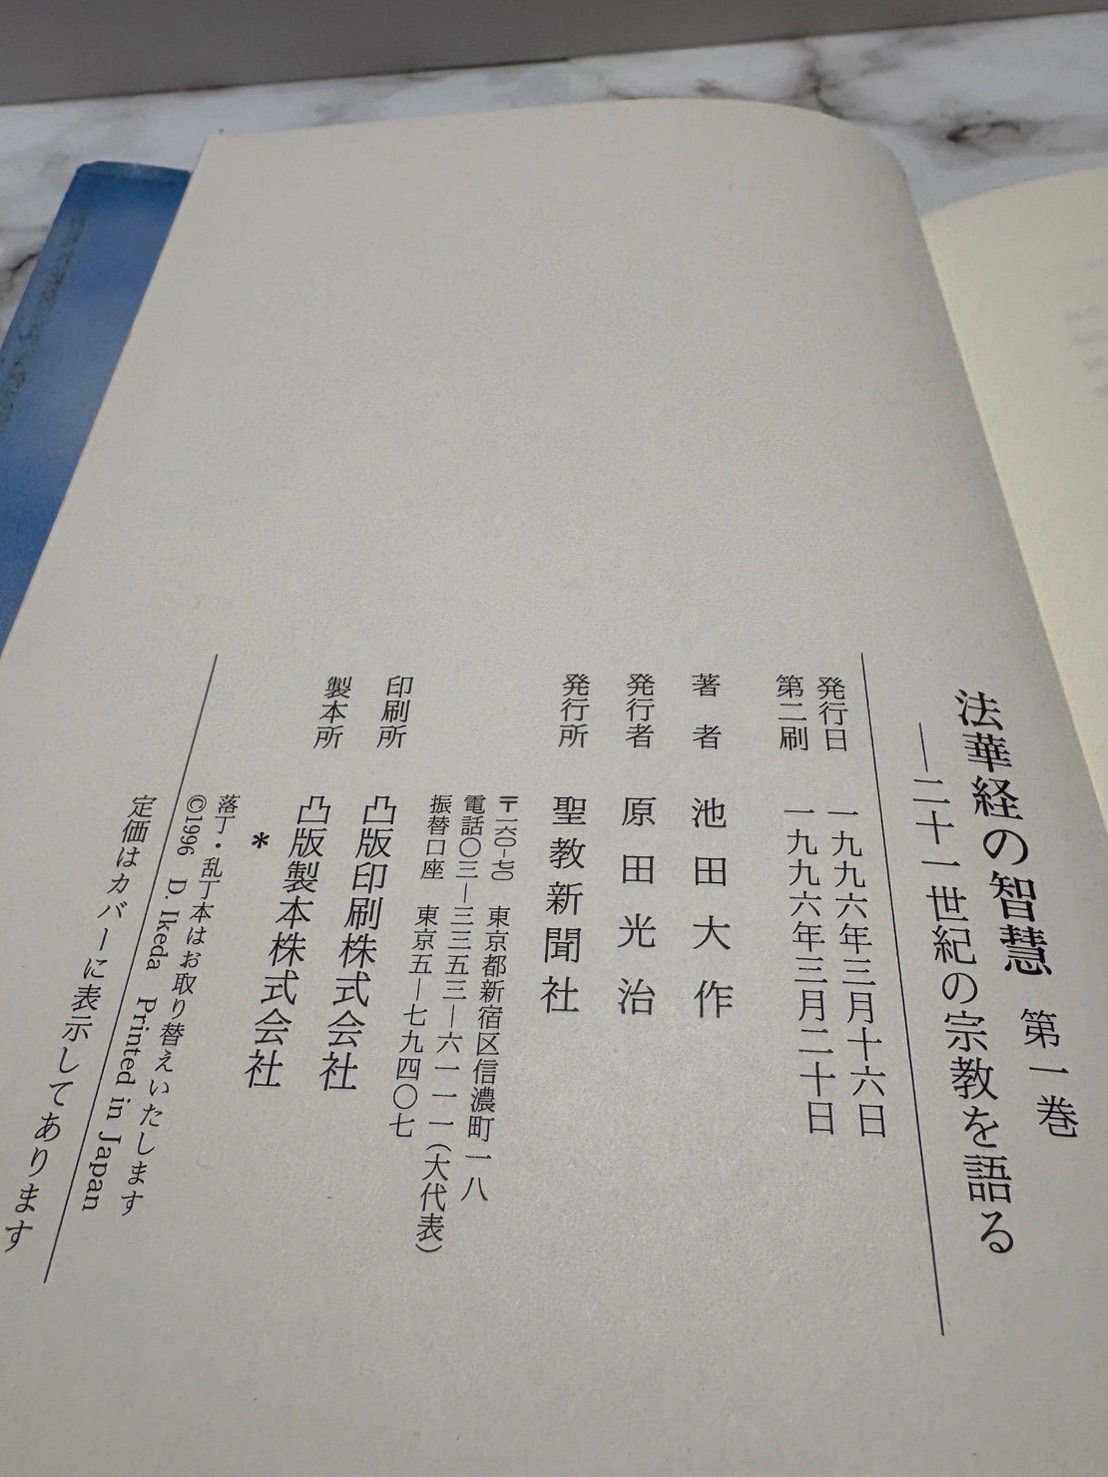 法華経の智慧　第一巻
―二十一世紀の宗教を語る
発行日　一九九六年三月十六日
第二刷　一九九六年三月二十日
著者　池田大作
発行者　原田光治
発行所　聖教新聞社
〒一六〇-七〇　東京都新宿区信濃町一八
電話〇三―三三五三―六一一一（大代表）
振替口座　東京五―七九四〇七
印刷所　凸版印刷株式会社
製本所　凸版製本株式会社
＊
落丁・乱丁本はお取り替えいたします
©1996 D. Ikeda Printed in Japan
定価はカバーに表示してあります